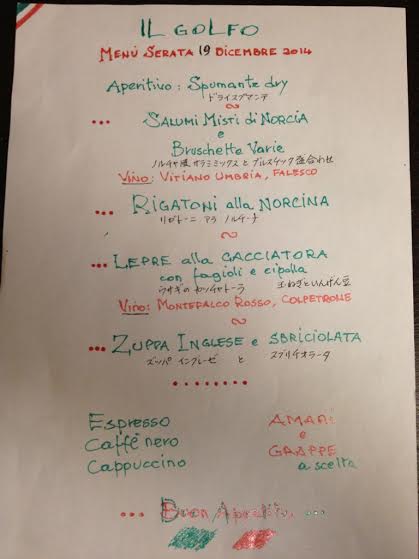 IL GOLFO
MENÙ SERATA 19 DICEMBRE 2014
Aperitivo: Spumante dry
ドライスプマンテ
SALUMI MISTI DI NORCIA
e
Bruschette Varie
ノルチャ風サラミミックスとブルスケッタ盛合わせ
VINO: VITIANO UMBRIA, FALESCO
RIGATONI alla NORCINA
リガトーニ アラ ノルチーナ
LEPRE alla CACCIATORA
con fagioli e cipolla
ウサギのカッチャトーラ 玉ねぎといんげん豆
VINO: MONTEFALCO ROSSO, COLPETRONE
ZUPPA INGLESE e SBRICIOLATA
ズッパ イングレーゼ と スブリチオラータ
Espresso
Caffè nero
Cappuccino
AMARI
e
GRAPPE
a scelta
... Buon Appetito ...